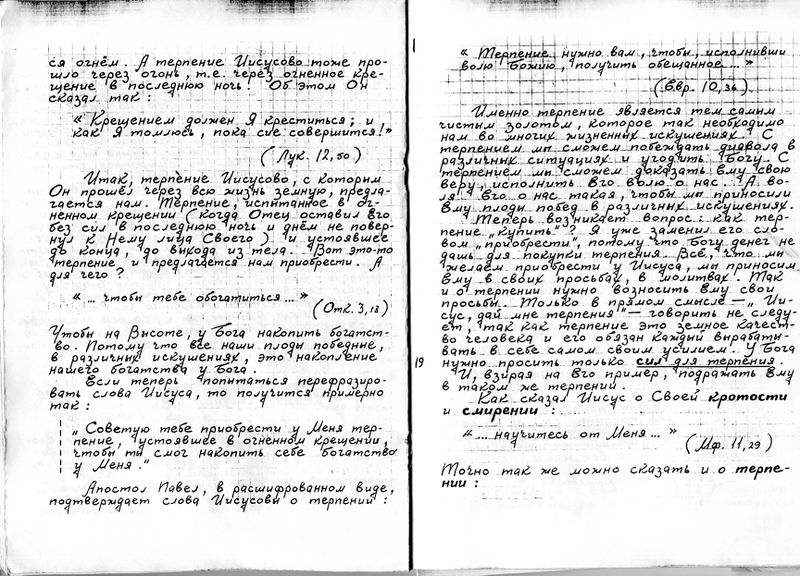 ся огнём. А терпение Иисусово тоже про-
шло через огонь, т.е. через огненное кре-
щение в последнюю ночь! Об этом Он
сказал так:
„Крещением должен Я креститься; и
как Я томлюсь, пока сие совершится!"
(Лук. 12,50)
Итак, терпение Иисусово, с которым
Он прошёл через всю жизнь земную, предла-
гается нам. Терпение, испытанное в ог-
ненном крещении (когда Отец оставил Его
без сил в последнюю ночь и днём не повер-
нул к Нему лица Своего) и устоявшее
до конца, до выхода из тела. Вот это-то
терпение и предлагается нам приобрести. А
для чего?
„... чтобы тебе обогатиться..."
(Отк. 3,18)
Чтобы на Высоте, у Бога накопить богатст-
во. Потому что все наши плоды победные,
в различных искушениях, это накопление
нашего богатства у Бога.
Если теперь попытаться перефразиро-
вать слова Иисуса, то получится примерно
так:
„Советую тебе приобрести у Меня тер-
пение, устоявшее в огненном крещении,
чтобы ты смог накопить себе богатство
у Меня."
Апостол Павел, в расшифрованном виде,
подтверждает слова Иисусовы о терпении:
„Терпение нужно вам, чтобы, исполнивши
волю Божию, получить обещанное..."
(Евр. 10,36)
Именно терпение является тем самым
чистым золотом, которое так необходимо
нам во многих жизненных искушениях. С
терпением мы сможем побеждать диавола в
различных ситуациях и угодить Богу. С
терпением мы сможем доказать Ему свою
веру, исполнить Его волю о нас. А во-
ля Его о нас такая, чтобы мы приносили
Ему плоды побед в различных искушениях.
Теперь возникает вопрос: как тер-
пение „купить"? Я уже заменил его сло-
вом „приобрести", потому что Богу денег не
дашь для покупки терпения. Всё, что мы
желаем приобрести у Иисуса, мы приносим
Ему в своих просьбах, в молитвах. Так
и о терпении нужно возносить Ему свои
просьбы. Только в прямом смысле — „Ии-
сус, дай мне терпения" — говорить не следу-
ет, так как терпение это земное качест-
во человека и его обязан каждый вырабаты-
вать в себе самом своим усилием. У Бога
19
нужно просить только сил для терпения.
И, взирая на Его пример, подражать Ему
в таком же терпении.
Как сказал Иисус о Своей кротости
и смирении:
„... научитесь от Меня..."
(Мф. 11,29)
Точно так же можно сказать и о терпе-
нии: